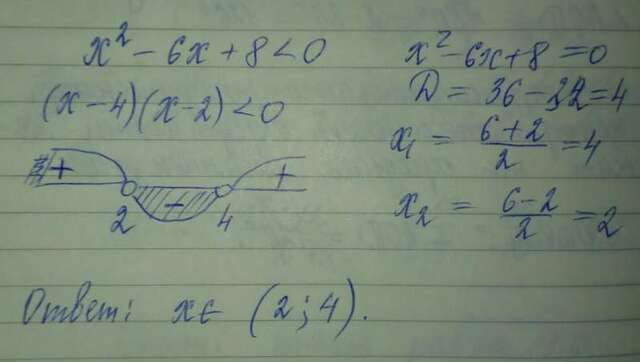 x² - 6x + 8 < 0
(x - 4)(x - 2) < 0
+ - +
2 4
x² - 6x + 8 = 0
D = 36 - 32 = 4
x₁ = (6 + 2)/2 = 4
x₂ = (6 - 2)/2 = 2
Ответ: x ∈ (2; 4).